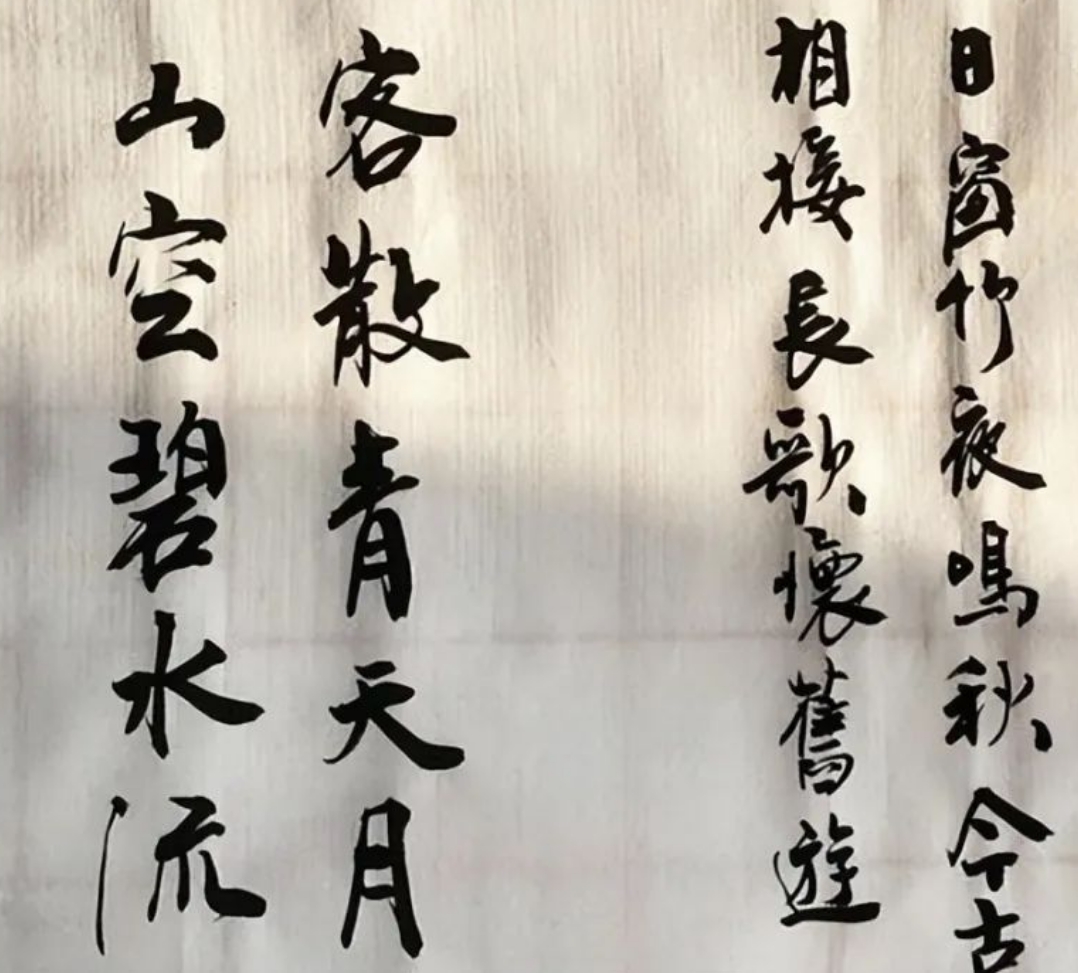 日窗竹夜鳴秋今古
相接長歌懷舊遊
客散青天月
山空碧水流